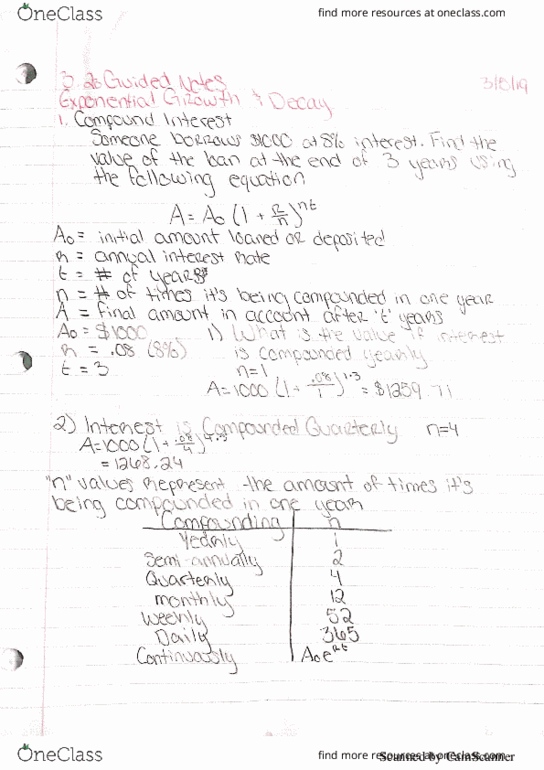 OneClass
find more resources at oneclass.com
3.2b Guided Notes
3/5/19
Exponential Growth & Decay
1. Compound Interest
Someone borrows $1000 at 8% interest. Find the
value of the loan at the end of 3 years using
the following equation
A = A₀ (1 + r/n)^nt
A₀ = initial amount loaned or deposited
r = annual interest rate
t = # of years
n = # of times it's being compounded in one year
A = final amount in account after 't' years
A₀ = $1000
1) What is the value if interest
r = .08 (8%)
is compounded yearly
t = 3
n=1
A=1000 (1 + .08/1)^1·3 = $1259.71
2) Interest is Compounded Quarterly n=4
A=1000(1 + .08/4)^4·3
= 1268.24
"n" values represent the amount of times it's
being compounded in one year
Compounding n
Yearly 1
Semi-annually 2
Quarterly 4
monthly 12
Weekly 52
Daily 365
Continuously A₀e^rt
OneClass
find more resources at oneclass.com
Scanned by CamScanner